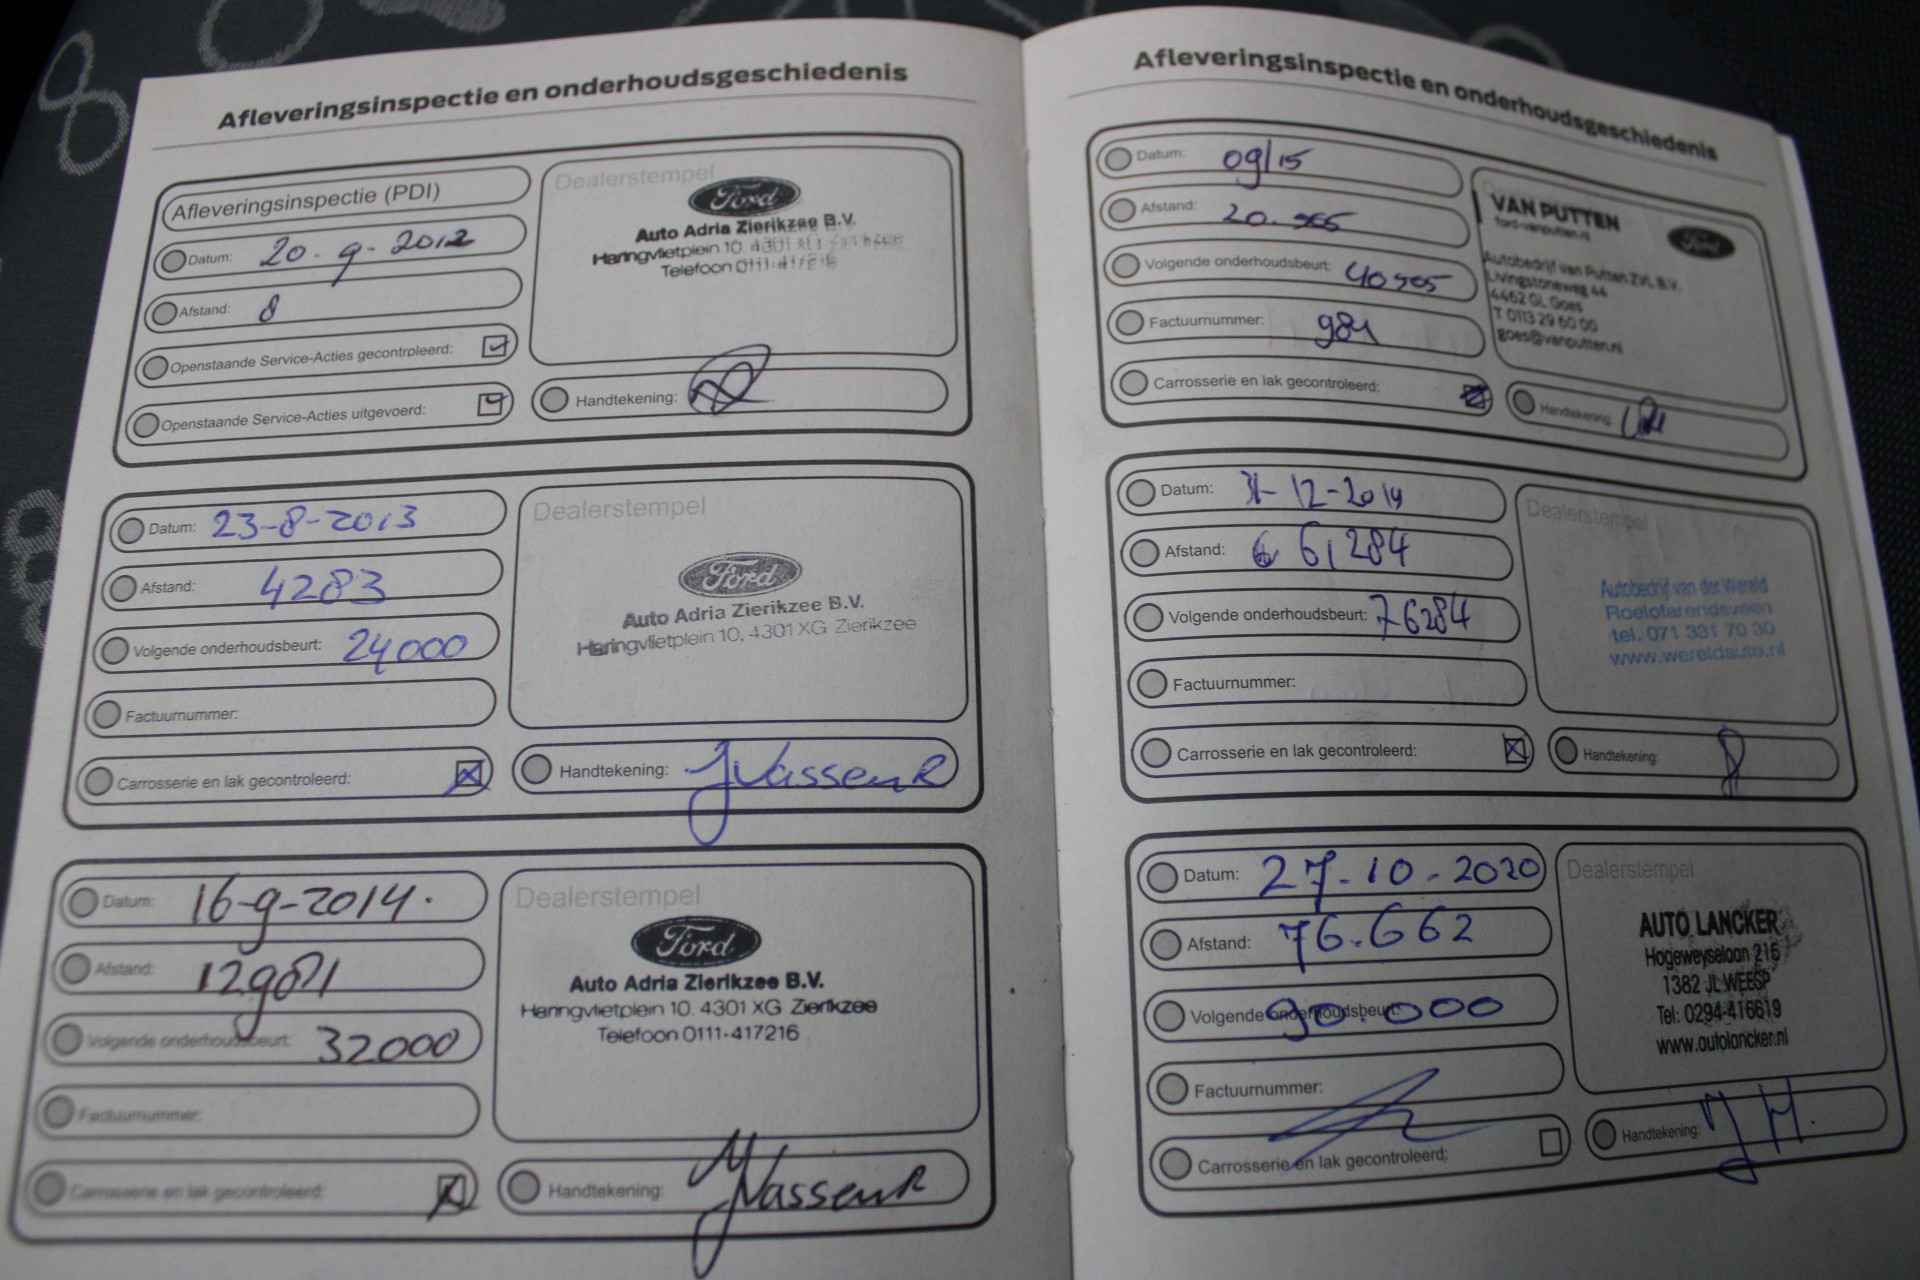 Afleveringsinspectie en onderhoudsgeschiedenis
Afleveringsinspectie (PDI)
Datum: 20-9-2012
Afstand: 8
Openstaande Service-Acties gecontroleerd:
Openstaande Service-Acties uitgevoerd:
Dealerstempel
Ford
Auto Adria Zierikzee B.V.
Haringvlietplein 10, 4301 XG Zierikzee
Telefoon 0111-417216
Handtekening:
Datum: 23-8-2013
Afstand: 4283
Volgende onderhoudsbeurt: 24000
Factuurnummer:
Carrosserie en lak gecontroleerd:
Dealerstempel
Ford
Auto Adria Zierikzee B.V.
Haringvlietplein 10, 4301 XG Zierikzee
Handtekening:
Datum: 16-9-2014.
Afstand: 12981
Volgende onderhoudsbeurt: 32000
Factuurnummer:
Carrosserie en lak gecontroleerd:
Dealerstempel
Ford
Auto Adria Zierikzee B.V.
Haringvlietplein 10. 4301 XG Zierikzee
Telefoon 0111-417216
Handtekening:
Afleveringsinspectie en onderhoudsgeschiedenis
Datum: 09/15
Afstand:
Volgende onderhoudsbeurt:
Factuurnummer: 981
Carrosserie en lak gecontroleerd:
VAN PUTTEN
ford-vanputten.nl
Ford
Autobedrijf van Putten ZVL B.V.
Livingstoneweg 44
4462 GL Goes
T 0113 29 60 00
goes@vanputten.nl
Handtekening:
Datum: 31-12-2019
Afstand: 61284
Volgende onderhoudsbeurt: 76284
Factuurnummer:
Carrosserie en lak gecontroleerd:
Dealerstempel
Autobedrijf van der Wereld
Roelofarendsveen
tel. 071 331 70 30
www.wereldauto.nl
Handtekening:
Datum: 27-10-2020
Afstand: 76.662
Volgende onderhoudsbeurt: 90.000
Factuurnummer:
Carrosserie en lak gecontroleerd:
Dealerstempel
AUTO LANCKER
Hogeweyselaan 216
1382 JL WEESP
Tel: 0294-416619
www.autolancker.nl
Handtekening: